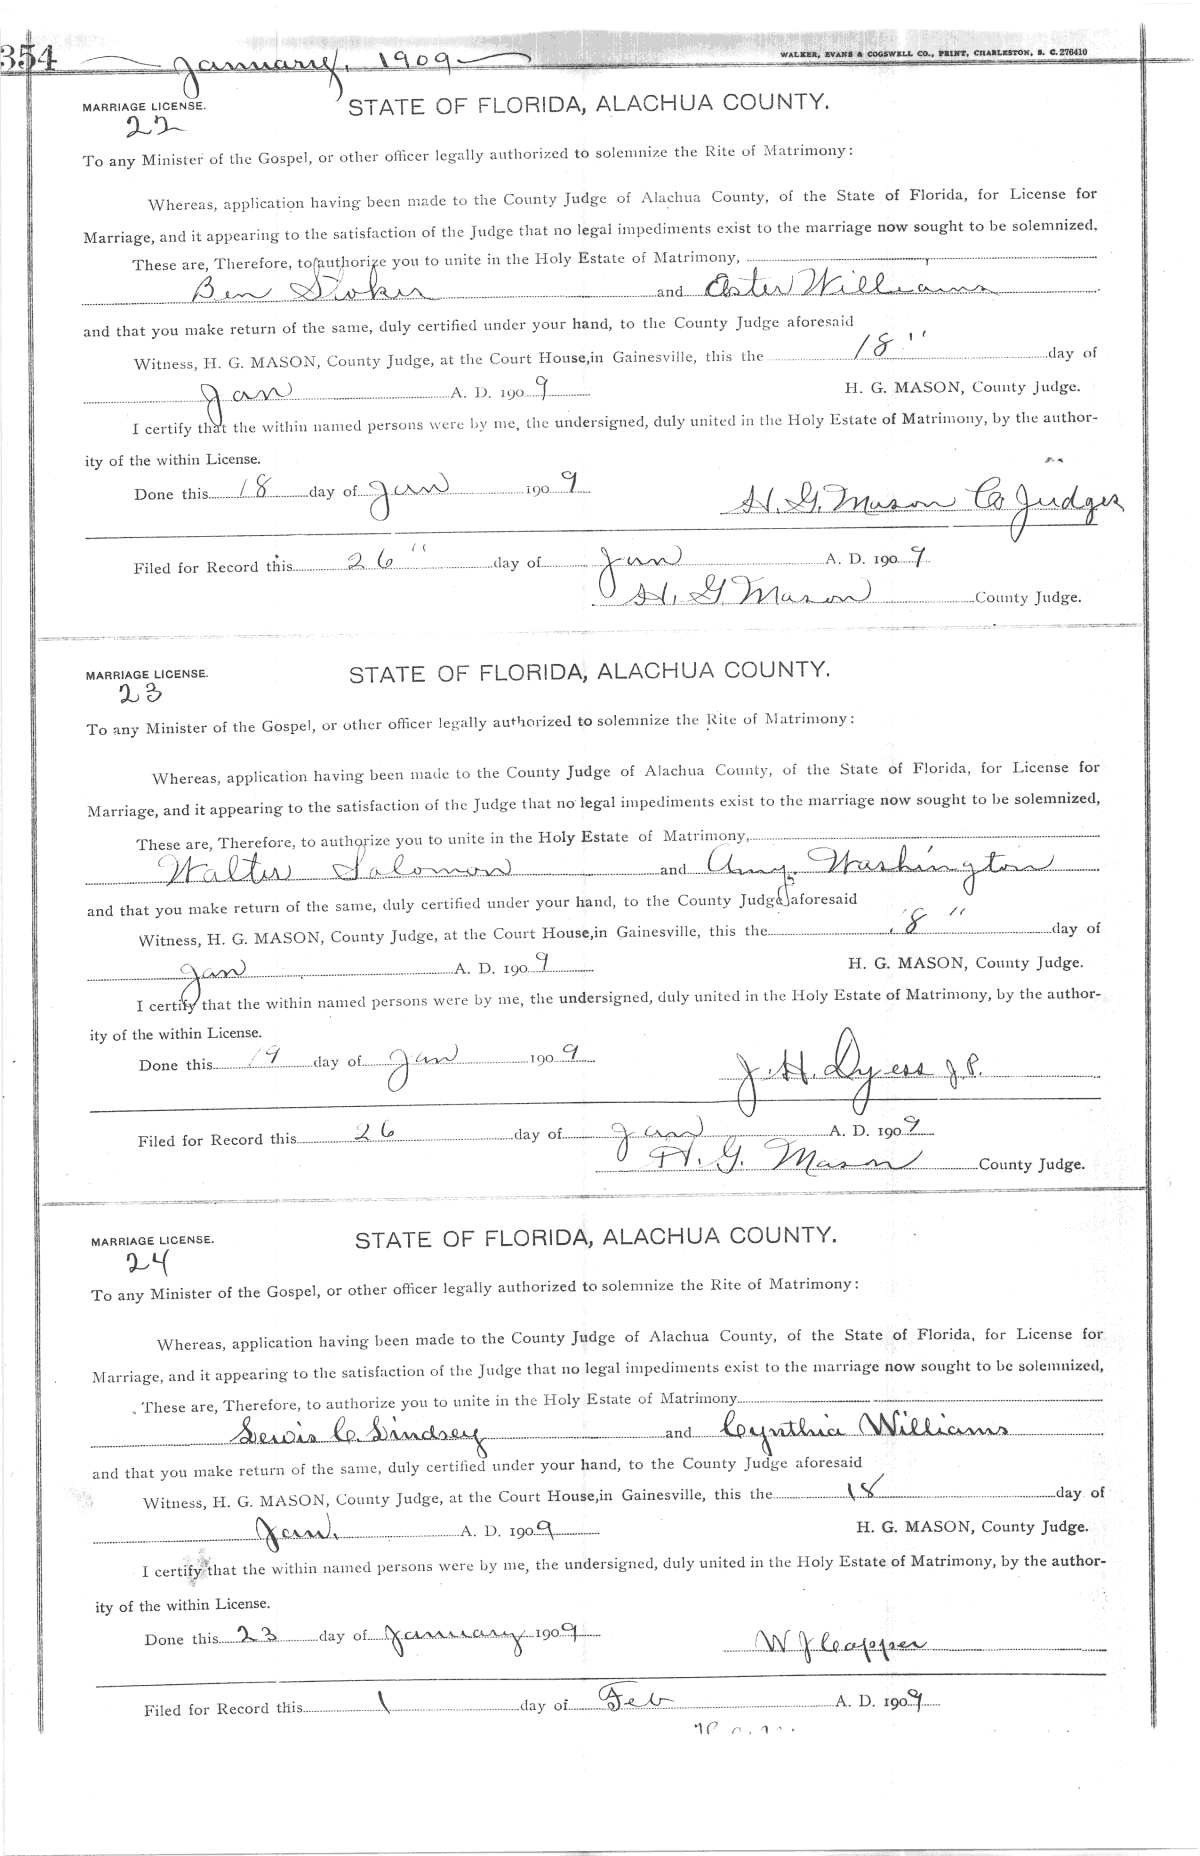 354 January, 1909 WALKER, EVANS & COGSWELL CO., PRINT, CHARLESTON, S. C. 276410
MARRIAGE LICENSE. STATE OF FLORIDA, ALACHUA COUNTY.
22
To any Minister of the Gospel, or other officer legally authorized to solemnize the Rite of Matrimony:
Whereas, application having been made to the County Judge of Alachua County, of the State of Florida, for License for
Marriage, and it appearing to the satisfaction of the Judge that no legal impediments exist to the marriage now sought to be solemnized.
These are, Therefore, to authorize you to unite in the Holy Estate of Matrimony,
Ben Stoker and Ester Williams
and that you make return of the same, duly certified under your hand, to the County Judge aforesaid
Witness, H. G. MASON, County Judge, at the Court House, in Gainesville, this the 18" day of
Jan A. D. 1909 H. G. MASON, County Judge.
I certify that the within named persons were by me, the undersigned, duly united in the Holy Estate of Matrimony, by the author-
ity of the within License.
Done this 18 day of Jan 1909 H. G. Mason Co Judge
Filed for Record this 26" day of Jan A. D. 1909
H. G Mason County Judge.
MARRIAGE LICENSE. STATE OF FLORIDA, ALACHUA COUNTY.
23
To any Minister of the Gospel, or other officer legally authorized to solemnize the Rite of Matrimony:
Whereas, application having been made to the County Judge of Alachua County, of the State of Florida, for License for
Marriage, and it appearing to the satisfaction of the Judge that no legal impediments exist to the marriage now sought to be solemnized,
These are, Therefore, to authorize you to unite in the Holy Estate of Matrimony,
Walter Solomon and Amy Washington
and that you make return of the same, duly certified under your hand, to the County Judge aforesaid
Witness, H. G. MASON, County Judge, at the Court House, in Gainesville, this the 18" day of
Jan A. D. 1909 H. G. MASON, County Judge.
I certify that the within named persons were by me, the undersigned, duly united in the Holy Estate of Matrimony, by the author-
ity of the within License.
Done this 19 day of Jan 1909 J. H. Dyess J P.
Filed for Record this 26 day of Jan A. D. 1909
H. G. Mason County Judge.
MARRIAGE LICENSE. STATE OF FLORIDA, ALACHUA COUNTY.
24
To any Minister of the Gospel, or other officer legally authorized to solemnize the Rite of Matrimony:
Whereas, application having been made to the County Judge of Alachua County, of the State of Florida, for License for
Marriage, and it appearing to the satisfaction of the Judge that no legal impediments exist to the marriage now sought to be solemnized,
These are, Therefore, to authorize you to unite in the Holy Estate of Matrimony
Lewis C. Lindsey and Cynthia Williams
and that you make return of the same, duly certified under your hand, to the County Judge aforesaid
Witness, H. G. MASON, County Judge, at the Court House, in Gainesville, this the 18 day of
Jan. A. D. 1909 H. G. MASON, County Judge.
I certify that the within named persons were by me, the undersigned, duly united in the Holy Estate of Matrimony, by the author-
ity of the within License.
Done this 23 day of January 1909 W J Capper
Filed for Record this 1 day of Feb A. D. 1909